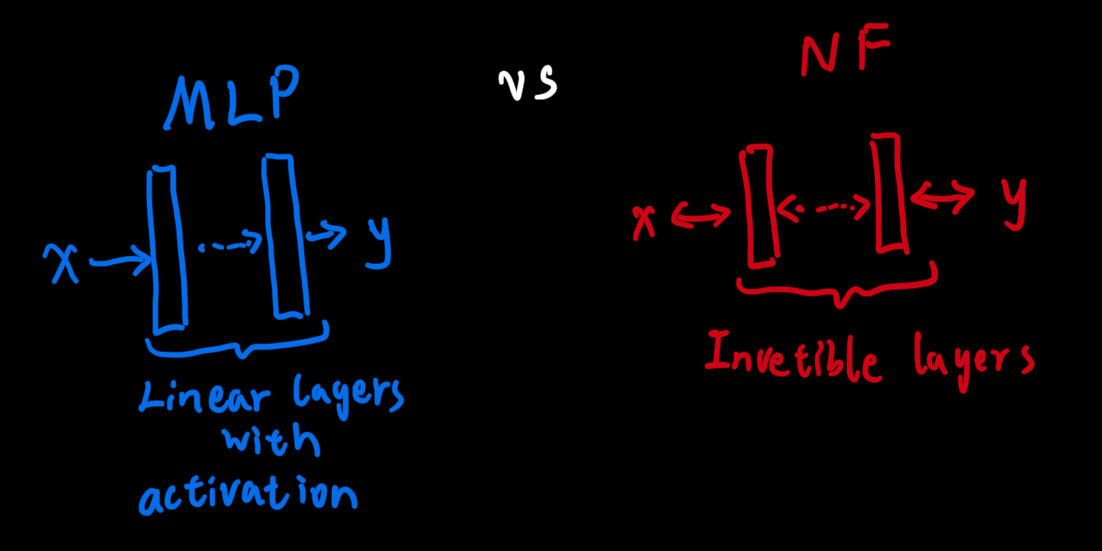 MLP
vs
NF
x
y
Linear layers
with
activation
x
y
Invetible layers